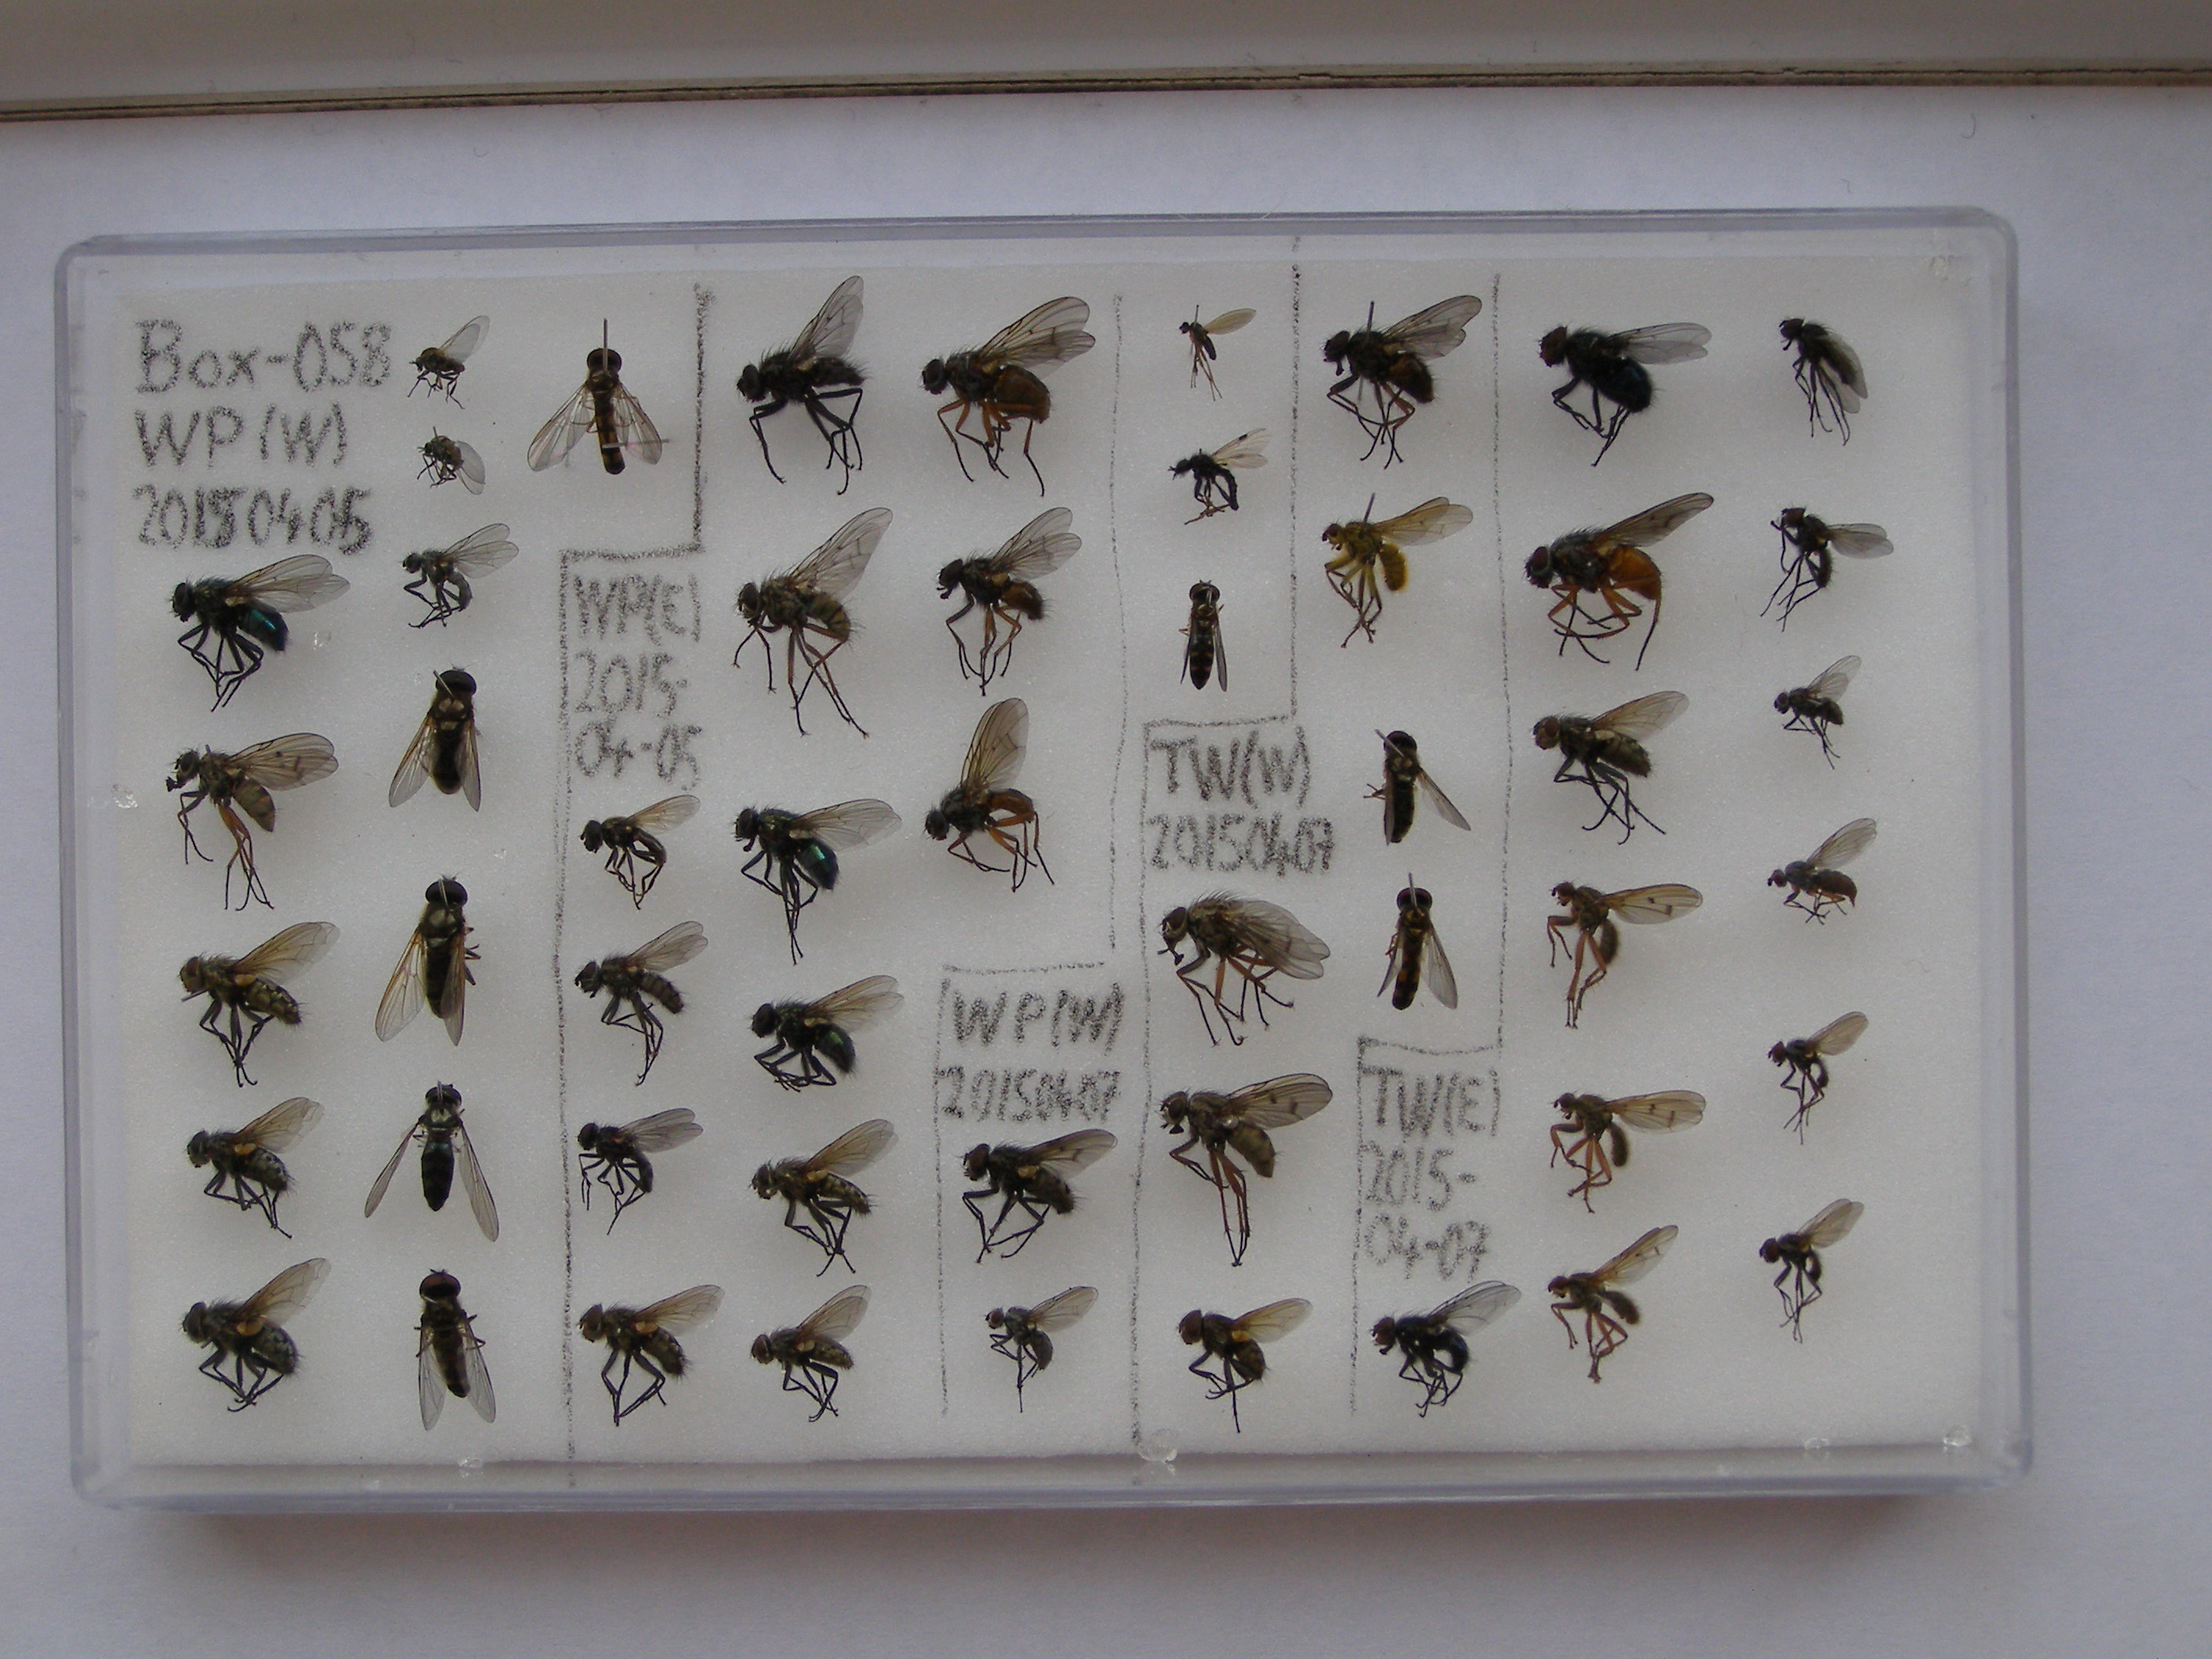 Box-058
WP(W)
20150405
WP(E)
2015-
04-05
WP(W)
20150407
TW(W)
20150407
TW(E)
2015-
04-07